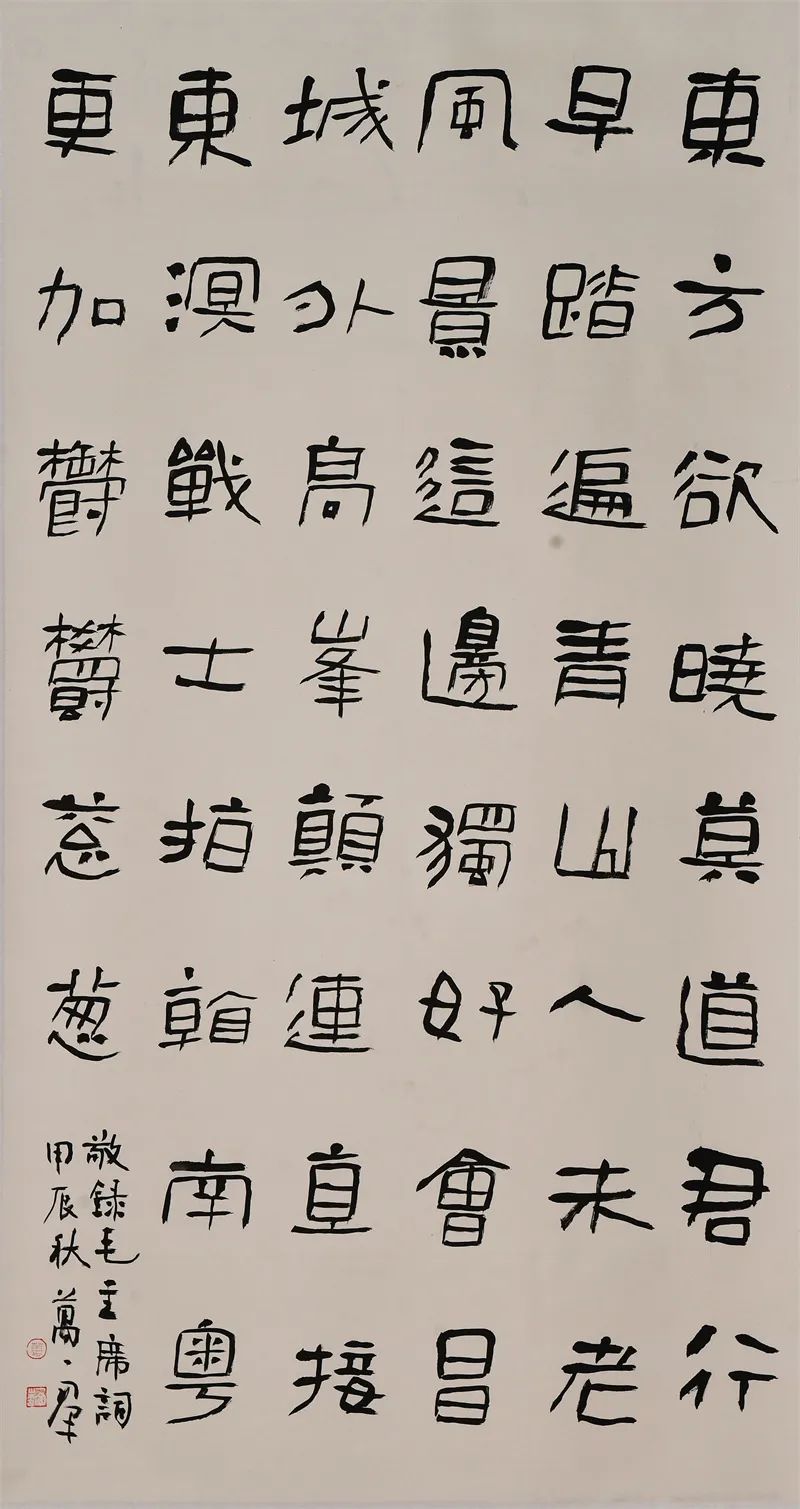 東方欲曉莫道君行
早踏遍青山人未老
風景這邊獨好會昌
城外高峯顛連直接
東溟戰士指看南粵
更加鬱鬱葱葱
敬録毛主席詞
甲辰秋萬